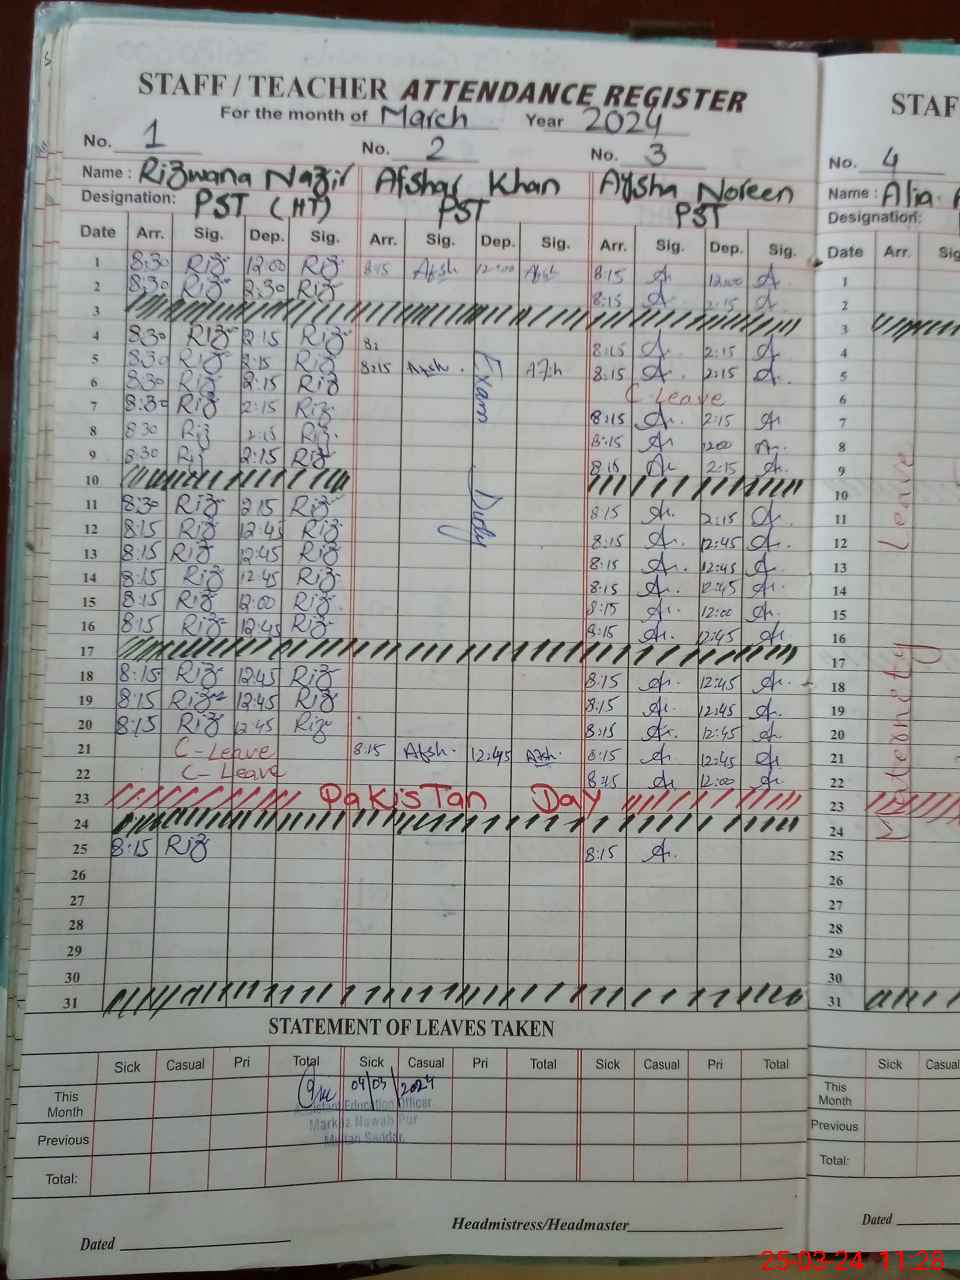 STAFF / TEACHER ATTENDANCE REGISTER
For the month of March Year 2024
No. 1 No. 2 No. 3
Name : Rizwana Nazir Afshar Khan Aysha Noreen
Designation: PST (HT) PST PST
Date Arr. Sig. Dep. Sig. Arr. Sig. Dep. Sig. Arr. Sig. Dep. Sig.
1 8:30 Riz 12:00 Riz 8:15 Afsh 12:00 Afsh 8:15 A. 12:00 A.
2 8:30 Riz 2:30 Riz 8:15 A. 2:15 A.
3
4 8:30 Riz 2:15 Riz 8: 8:15 A. 2:15 A.
5 8:30 Riz 2:15 Riz 8:15 Afsh. Afsh 8:15 A. 2:15 A.
6 8:30 Riz 2:15 Riz C-Leave
7 8:30 Riz 2:15 Riz 8:15 A. 2:15 A.
8 8:30 Riz 2:15 Riz 8:15 A. 12:00 A.
9 8:30 Riz 2:15 Riz 8:15 A. 2:15 A.
Exam Duty
10
11 8:30 Riz 2:15 Riz 8:15 A. 2:15 A.
12 8:15 Riz 12:45 Riz 8:15 A. 12:45 A.
13 8:15 Riz 12:45 Riz 8:15 A. 12:45 A.
14 8:15 Riz 12:45 Riz 8:15 A. 12:45 A.
15 8:15 Riz 12:00 Riz 8:15 A. 12:00 A.
16 8:15 Riz 12:45 Riz 8:15 A. 12:45 A.
17
18 8:15 Riz 12:45 Riz 8:15 A. 12:45 A.
19 8:15 Riz 12:45 Riz 8:15 A. 12:45 A.
20 8:15 Riz 12:45 Riz 8:15 A. 12:45 A.
21 C-Leave 8:15 Afsh. 12:45 Afsh. 8:15 A. 12:45 A.
22 C-Leave 8:15 A. 12:00 A.
23 Pakistan Day
24
25 8:15 Riz 8:15 A.
26
27
28
29
30
31
STATEMENT OF LEAVES TAKEN
Sick Casual Pri Total Sick Casual Pri Total Sick Casual Pri Total
This Month
04/03/2024
Assistant Education Officer
Markaz Nawab Pur
Multan Saddar.
Previous
Total:
Headmistress/Headmaster
Dated
STAF
No. 4
Name : Alia
Designation:
Date Arr. Sig
1
2
3
4
5
6
7
8
9
10
11
12
13
14
15
16
17
18
19
20
21
22
23
24
25
26
27
28
29
30
31
Maternity Leave
Sick Casual
This Month
Previous
Total:
Dated
25-03-24 11:28